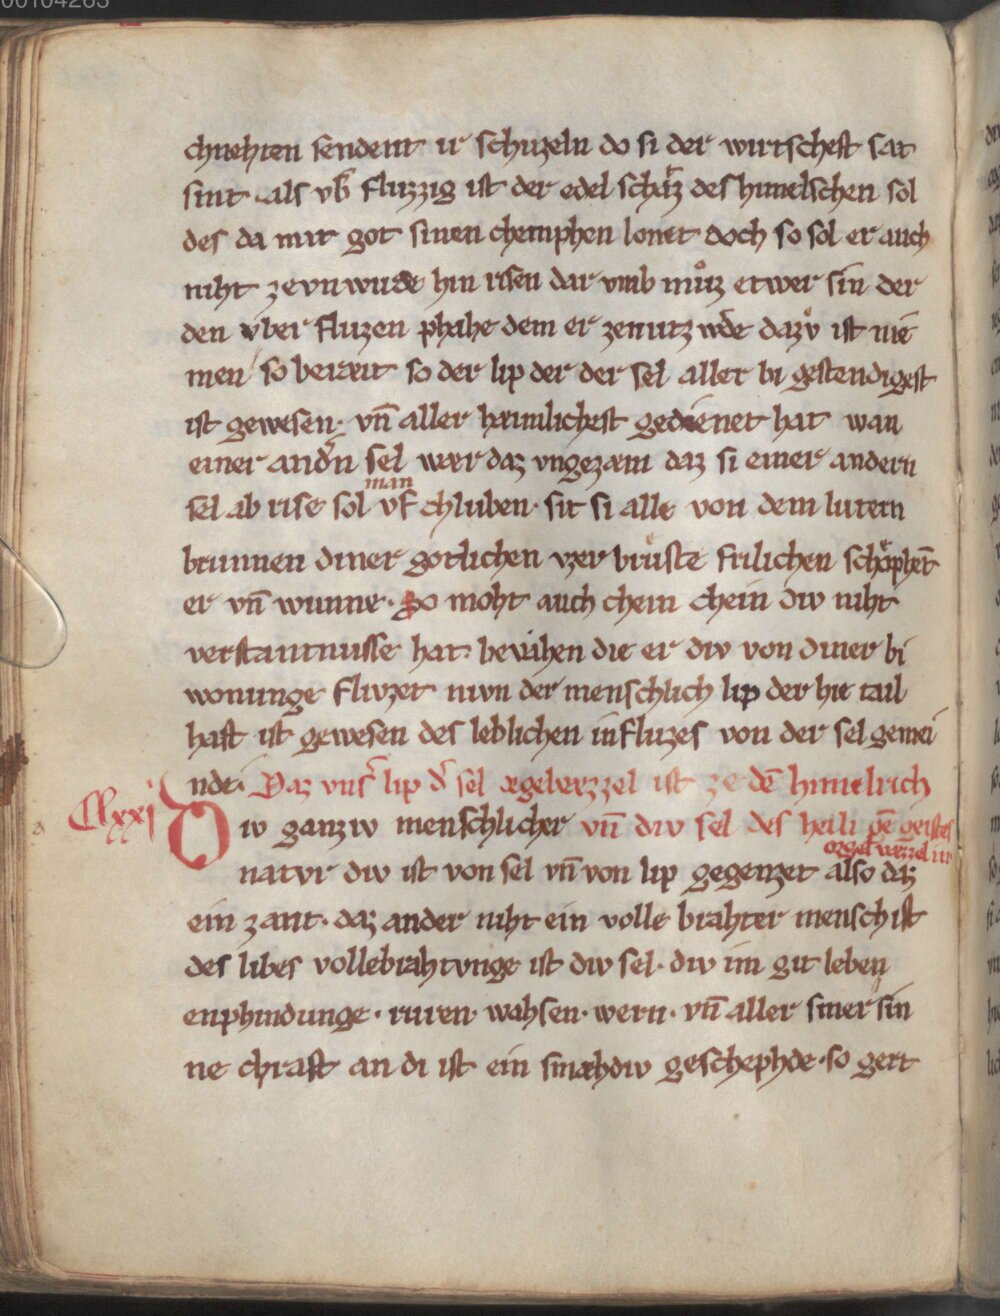 00104263
chnehten sendent ir schuzeln do si der wirtscheft sat
sint · als vb᷑ fluzzig ist der edel schaͤtz des himelschen sol
des da mit got sinen chemphen lonet doch so sol er auch
niht ze vnwirde hin risen dar vmb muͦz etwer sin der
den vber fluzen phahe dem er ze nutz wde dazv ist nie
men so berait so der lip der der sel aller bi gestendigest
ist gewesen · vn̄ aller haimlichest gedienet hat wan
einer andn̄ sel waer daz vngezaem daz si einer andern
man
sel ab rise sol vf chluben · sit si alle von dem lutern
brunnen diner gotlichen vzer bruͤste frilichen schoͤphet
er vn̄ wunne · So moht auch chein chein div niht
verstantnusse hat · bevahen die er div von diner bi
wonunge flivzet nivn der menschlich lip der hie tail
haft ist gewesen des leblichen influzes von der sel gemei
nde · Daz vns᷑ lip d᷑ sel orgelvazzel ist ze dē himelrich
Clxxi
Div ganziv menschlicher vn̄ div sel des heiligē geistes
orgel vazzel ist
natvr div ist von sel vn̄ von lip gegenzet also daz
ein zant · daz ander niht ein volle brahter mensch ist
des libes vollebrahtvnge ist div sel · div im git leben
enphindunge · ruren · wahsen · wern · vn̄ aller siner sin
ne chraft an di ist ein smaehdiv geschephde · so gert